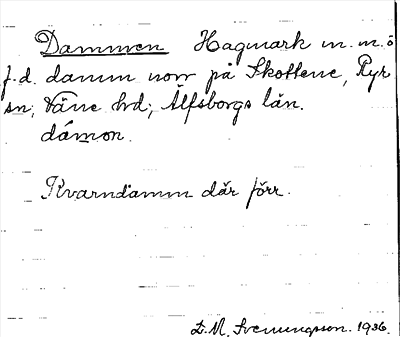 Dammen Hagmark m. m. ö
f. d. damm norr på Skottene, Ryr
sn, Väne hd; Älfsborgs län.
dámon.
Kvarndamm där förr.
L. M. Svenungsson. 1936.